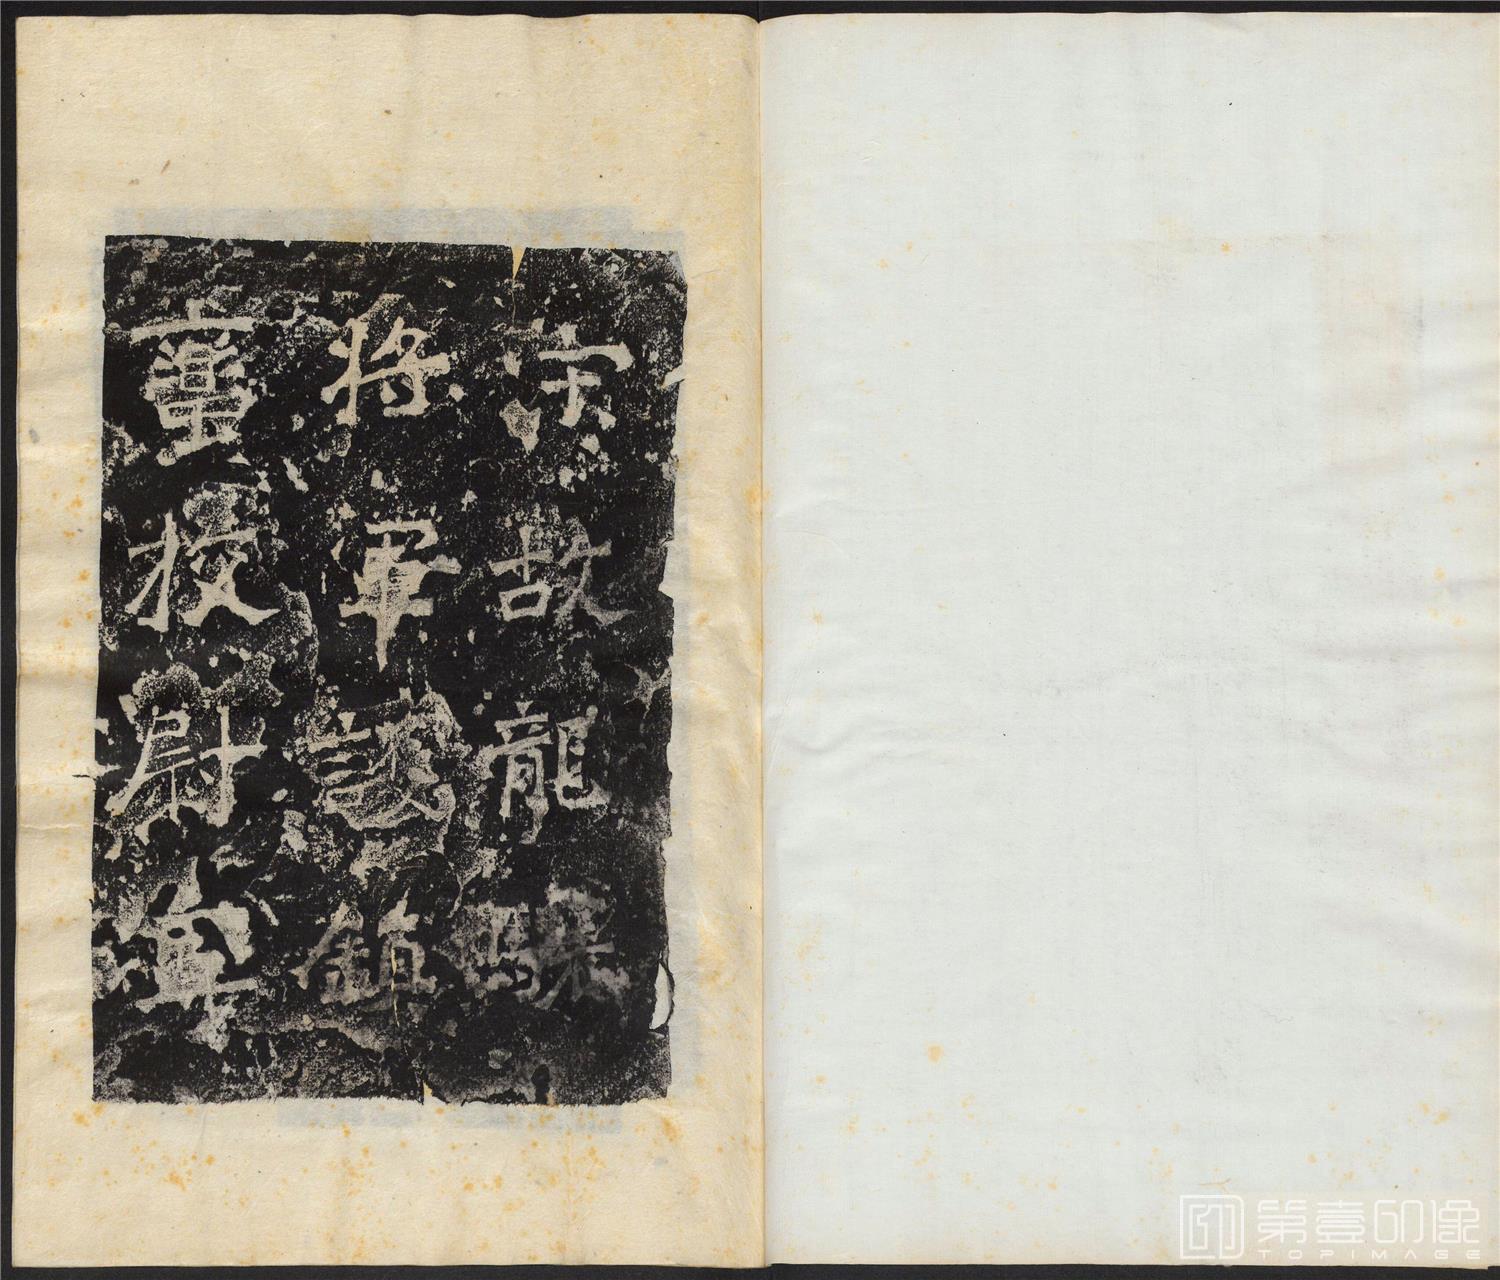 宋故龍驤
將軍護鎮
蠻校尉寧
第壹印像
TOPIMAGE